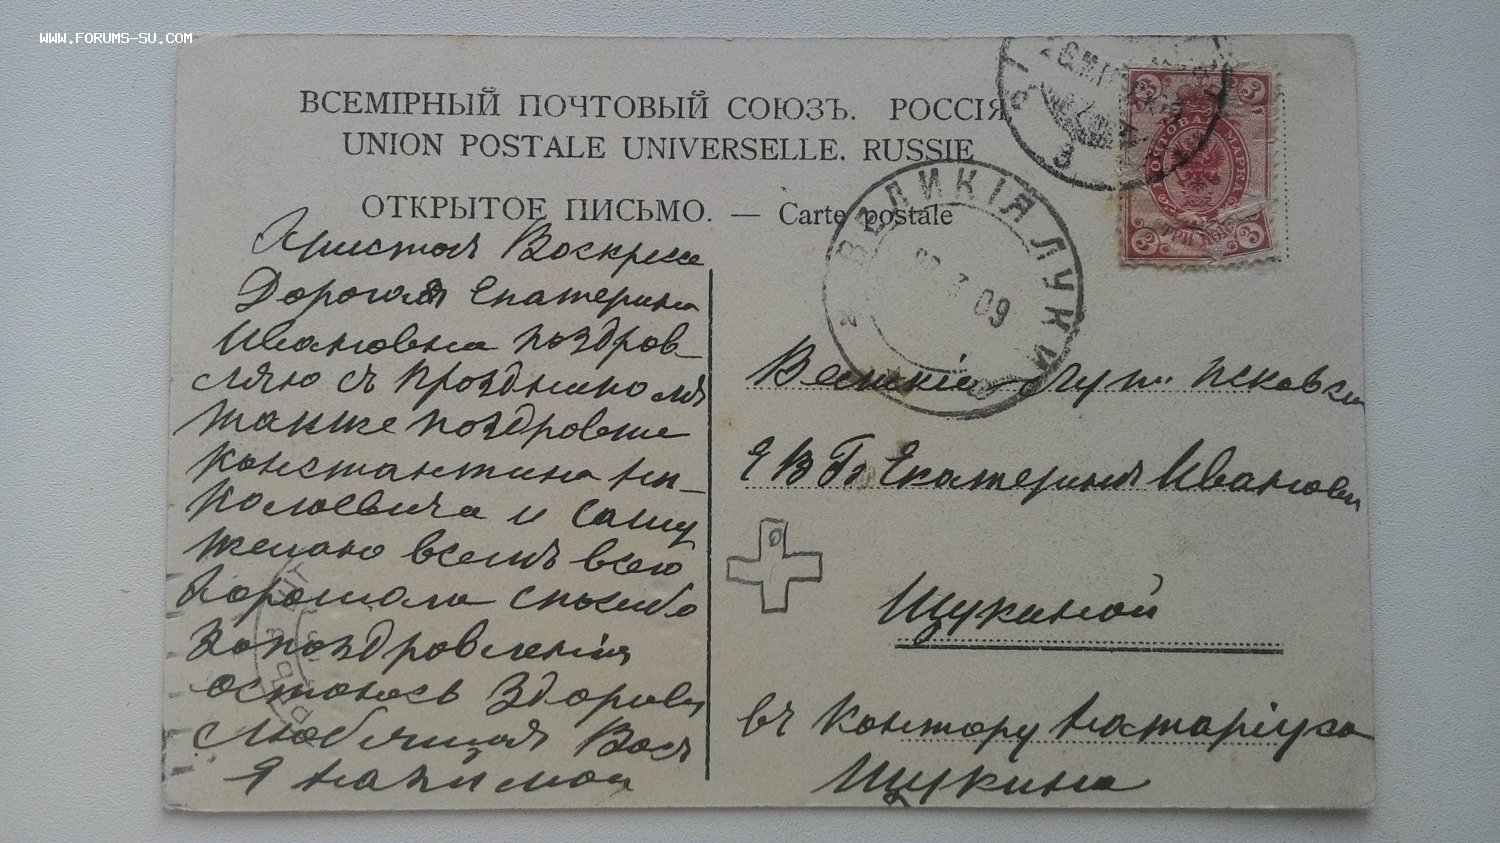 WWW.FORUMS-SU.COM
ВСЕМІРНЫЙ ПОЧТОВЫЙ СОЮЗЪ. РОССІЯ
UNION POSTALE UNIVERSELLE. RUSSIE
ОТКРЫТОЕ ПИСЬМО. — Carte postale
Христосъ Воскресе
Дорогая Екатерина
Ивановна поздров-
ляю съ Проздникомъ
также поздровте
Константина Ни-
колоевича и Сашу
желаю всемъ всего
хорошаго спосибо
за поздровленія
остаюсь Здорова
Любящая Васъ
3 3
ПОЧТОВАЯ МАРКА
ТРИ КОП
3 3
3
ВЕЛИКІЯ ЛУКИ
3 09
Великіе Луки Псковск
Е В Б Екатерине Ивановн
Щукиной
въ Контору Натаріуса
Щукина